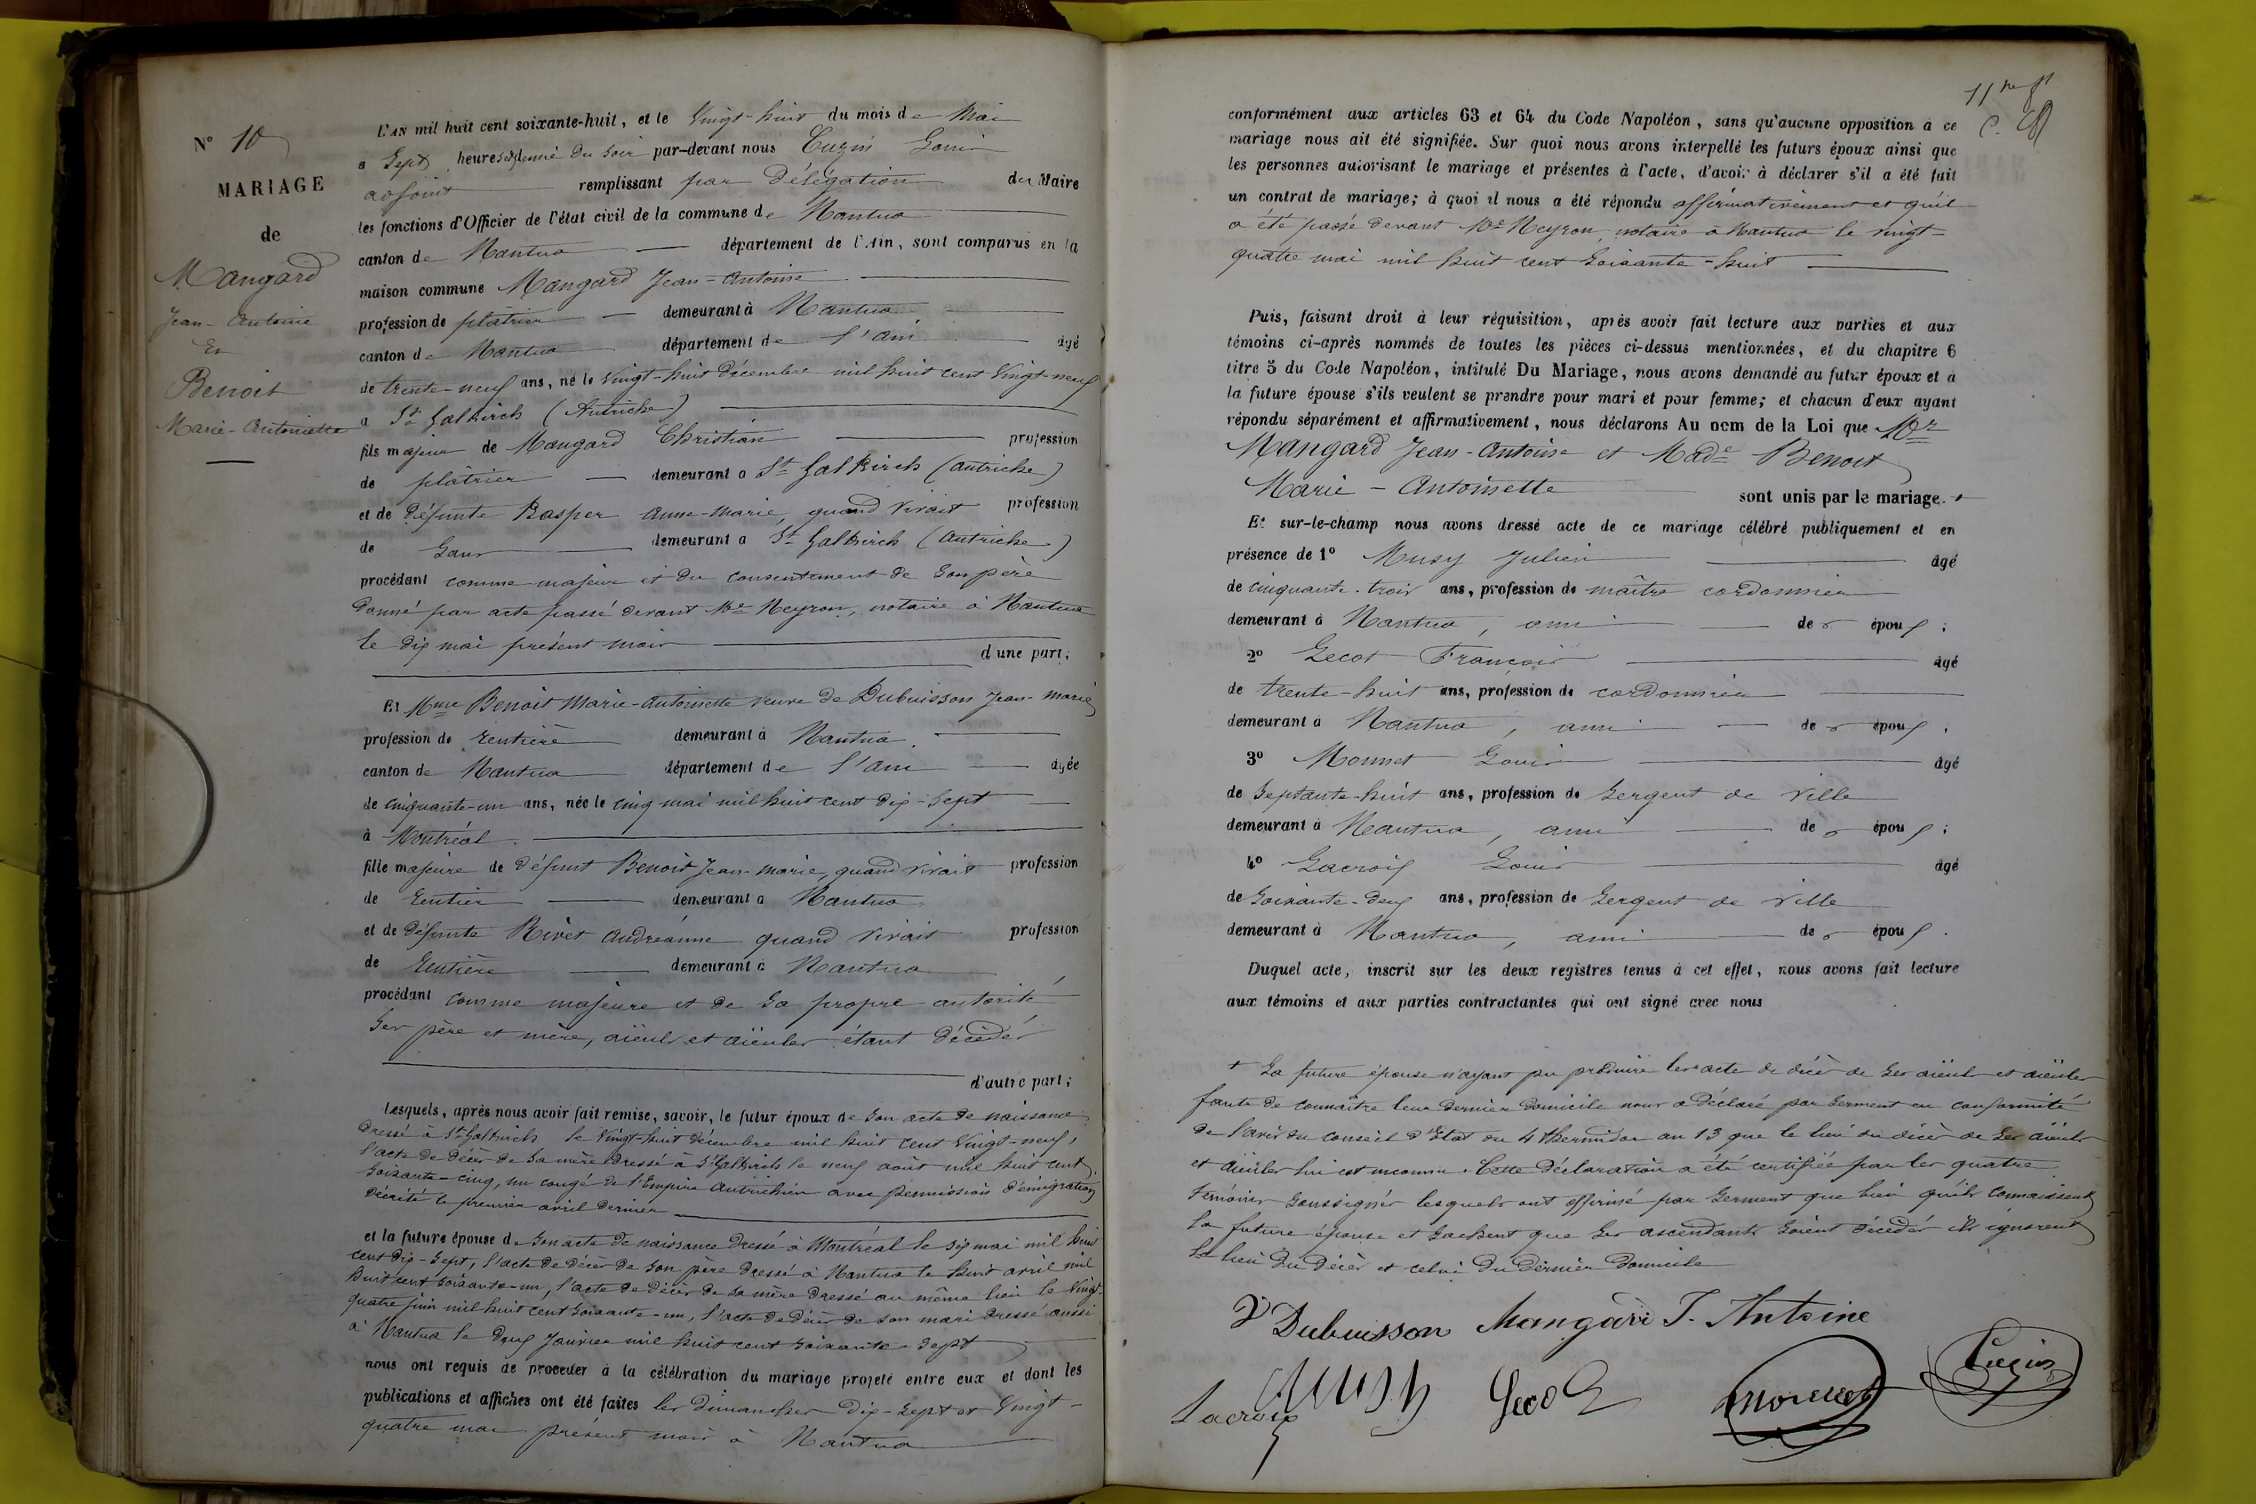 N° 10
MARIAGE
de
Mangard
Jean-Antoine
Et
Benoit
Marie-Antoinette
L'AN mil huit cent soixante-huit, et le Vingt-huit du mois de Mai
a Sept heures & demie du soir par-devant nous Cuzin Louis
adjoint remplissant par délégation du Maire
les fonctions d'Officier de l'état civil de la commune de Nantua
canton de Nantua département de l'Ain, sont comparus en la
maison commune Mangard Jean-Antoine
profession de plâtrier demeurant à Nantua
canton de Nantua département de l'Ain âgé
de trente-neuf ans, né le Vingt-huit décembre mil huit cent Vingt-neuf
a St Galkirch (Autriche)
fils majeur de Mangard Christian profession
de plâtrier demeurant a St Galkirch (Autriche)
et de défunte Kasper Anne-Marie, quand vivait profession
de Sans demeurant a St Galkirch (Autriche)
procédant comme majeur et du consentement de son père
donné par acte passé devant Me Neyron, notaire à Nantua
le dix mai présent mois d'une part;
Et Mme Benoit Marie-Antoinette veuve de Dubuisson Jean-Marie
profession de rentière demeurant à Nantua
canton de Nantua département de l'Ain âgée
de cinquante-un ans, née le cinq mai mil huit cent dix-sept
à Montréal
fille majeure de défunt Benoit Jean-Marie, quand vivait profession
de rentier demeurant a Nantua
et de défunte Rivet Andréanne quand vivait profession
de rentière demeurant à Nantua
procédant comme majeure et de sa propre autorité
ses père et mère, aïeuls et aïeules étant décédés
d'autre part;
Lesquels, après nous avoir fait remise, savoir, le futur époux de son acte de naissance
dressé à St Galkirch le Vingt-huit décembre mil huit cent vingt-neuf,
l'acte de décès de sa mère dressé à St Galkirch le neuf août mil huit cent
soixante-cinq, un congé de l'Empire Autrichien avec permission d'émigration
décrété le premier avril dernier
et la future épouse de son acte de naissance dressé à Montréal le six mai mil huit
cent dix-sept, l'acte de décès de son père dressé à Nantua le huit avril mil
huit cent soixante-un, l'acte de décès de sa mère dressé au même lieu le Vingt-
quatre juin mil huit cent soixante-un, l'acte de décès de son mari dressé aussi
à Nantua le deux Janvier mil huit cent soixante-sept
nous ont requis de procéder à la célébration du mariage projeté entre eux et dont les
publications et affiches ont été faites les dimanches dix-sept et Vingt-
quatre mai présent mois à Nantua
conformément aux articles 63 et 64 du Code Napoléon, sans qu'aucune opposition à ce
mariage nous ait été signifiée. Sur quoi nous avons interpellé les futurs époux ainsi que
les personnes autorisant le mariage et présentes à l'acte, d'avoir à déclarer s'il a été fait
un contrat de mariage; à quoi il nous a été répondu affirmativement et qu'il
a été passé devant Me Neyron, notaire à Nantua le vingt-
quatre mai mil huit cent soixante-huit
Puis, faisant droit à leur réquisition, après avoir fait lecture aux parties et aux
témoins ci-après nommés de toutes les pièces ci-dessus mentionnées, et du chapitre 6
titre 5 du Code Napoléon, intitulé Du Mariage, nous avons demandé au futur époux et à
la future épouse s'ils veulent se prendre pour mari et pour femme; et chacun d'eux ayant
répondu séparément et affirmativement, nous déclarons Au nom de la Loi que Mr
Mangard Jean-Antoine et Made Benoit
Marie-Antoinette sont unis par le mariage. +
Et sur-le-champ nous avons dressé acte de ce mariage célébré publiquement et en
présence de 1° Musy Julien âgé
de cinquante-trois ans, profession de maître cordonnier
demeurant à Nantua, ami des époux;
2° Lecot François âgé
de trente-huit ans, profession de cordonnier
demeurant à Nantua, ami des époux,
3° Monnet Louis âgé
de septante-huit ans, profession de Sergent de ville
demeurant à Nantua, ami des époux;
4° Lacroix Louis âgé
de soixante-deux ans, profession de Sergent de ville
demeurant à Nantua, ami des époux.
Duquel acte, inscrit sur les deux registres tenus à cet effet, nous avons fait lecture
aux témoins et aux parties contractantes qui ont signé avec nous
+ La future épouse n'ayant pu produire les acte de décès de ses aïeuls et aïeules
faute de connaître leur dernier domicile nous a déclaré par serment en conformité
de l'avis du conseil d'Etat du 4 thermidor an 13 que le lieu du décès de ses aïeuls
et aïeules lui est inconnu. Cette déclaration a été certifiée par les quatre
témoins soussignés lesquels ont affirmé par serment que bien qu'ils connaissent
la future épouse et sachent que ses ascendants soient décédés ils ignorent
le lieu du décès et celui du dernier domicile
Ve Dubuisson Mangard J. Antoine
Lacroix Musy Lecot Monnet Cuzin